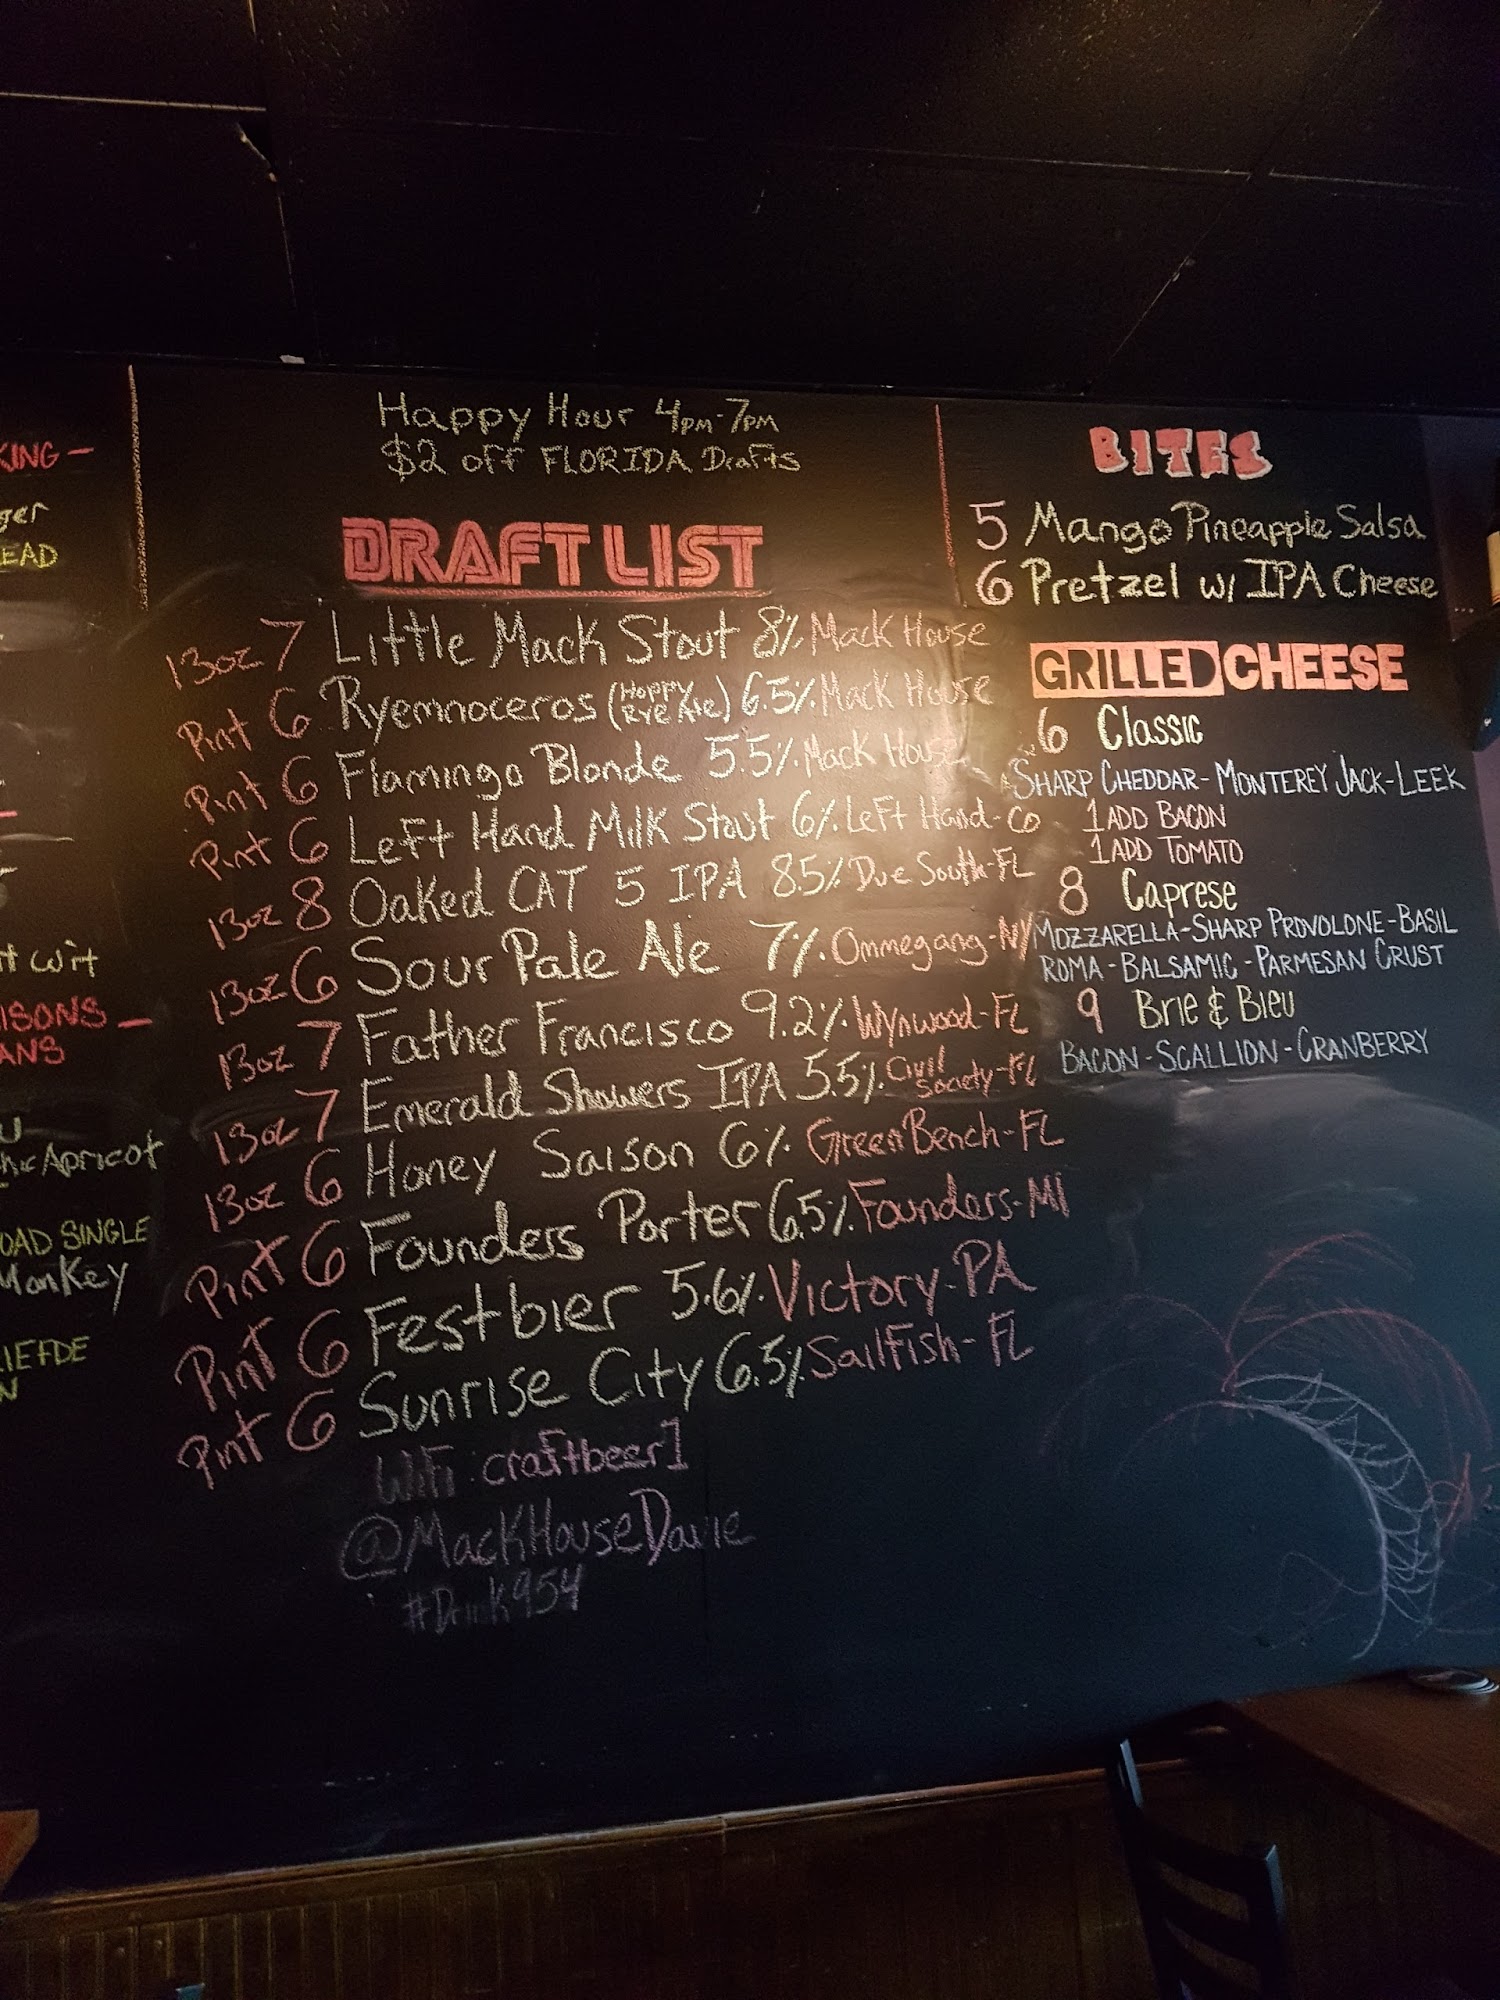 KING -
ger
EAD
wit
ISONS -
ANS
Apricot
OAD SINGLE
Monkey
LIEFDE
N
Happy Hour 4pm-7pm
$2 off FLORIDA Drafts
DRAFT LIST
13oz 7 Little Mack Stout 8% Mack House
Pint 6 Ryemnoceros (Hoppy Rye Ale) 6.5% Mack House
Pint 6 Flamingo Blonde 5.5% Mack House
Pint 6 Left Hand Milk Stout 6% Left Hand-CO
13oz 8 Oaked CAT 5 IPA 8.5% Due South-FL
13oz 6 Sour Pale Ale 7% Ommegang-NY
13oz 7 Father Francisco 9.2% Wynwood-FL
13oz 7 Emerald Showers IPA 5.5% Civil Society-FL
13oz 6 Honey Saison 6% Green Bench-FL
Pint 6 Founders Porter 6.5% Founders-MI
Pint 6 Festbier 5.6% Victory-PA
Pint 6 Sunrise City 6.5% SailFish-FL
WiFi: craftbeer1
@MackHouseDavie
#Drink954
BITES
5 Mango Pineapple Salsa
6 Pretzel w/ IPA Cheese
GRILLED CHEESE
6 Classic
SHARP CHEDDAR - MONTEREY JACK - LEEK
1 ADD BACON
1 ADD TOMATO
8 Caprese
MOZZARELLA - SHARP PROVOLONE - BASIL
ROMA - BALSAMIC - PARMESAN CRUST
9 Brie & Bleu
BACON - SCALLION - CRANBERRY